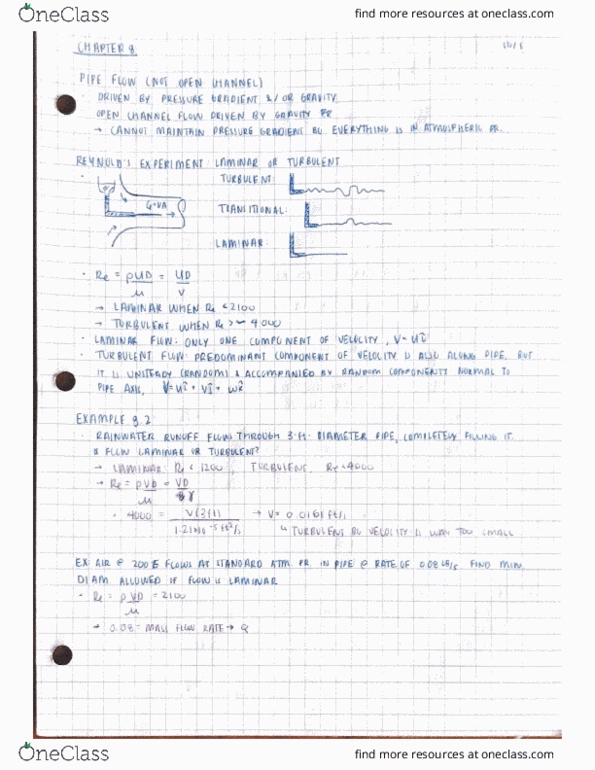 OneClass
find more resources at oneclass.com
CHAPTER 8
PIPE FLOW (NOT OPEN CHANNEL)
· DRIVEN BY PRESSURE GRADIENT &/OR GRAVITY.
OPEN CHANNEL FLOW DRIVEN BY GRAVITY
→ CANNOT MAINTAIN PRESSURE GRADIENT BC EVERYTHING IS IN ATMOSPHERIC PR.
REYNOLD'S EXPERIMENT: LAMINAR OR TURBULENT
TURBULENT:
Q=VA
TRANSITIONAL:
LAMINAR:
· Re = ρUD = UD
μ ν
→ LAMINAR WHEN Re <2100
→ TURBULENT WHEN Re >~ 4000
· LAMINAR FLOW: ONLY ONE COMPONENT OF VELOCITY, V= Uî
· TURBULENT FLOW: PREDOMINANT COMPONENT OF VELOCITY IS ALSO ALONG PIPE, BUT
IT IS UNSTEADY (RANDOM) & ACCOMPANIED BY RANDOM COMPONENTS NORMAL TO
PIPE AXIS,
EXAMPLE 8.2
· RAINWATER RUNOFF FLOWS THROUGH 3-ft- DIAMETER PIPE, COMPLETELY FILLING IT.
IS FLOW LAMINAR OR TURBULENT?
→ LAMINAR: Re < , TURBULENT: 4000
→ Re = ρVD = VD
μ
· 4000 = V(3ft) → V= 0.0161 ft/s
ft²/s
↳ TURBULENT BC VELOCITY IS WAY TOO SMALL
EX: AIR @ FLOWS AT STANDARD ATM. PR. IN PIPE @ RATE OF 0.08 lb/s FIND MIN.
DIAM ALLOWED IF FLOW IS LAMINAR
· Re = ρVD = 2100
μ
→ 0.08 = MASS FLOW RATE → Q
OneClass
find more resources at oneclass.com